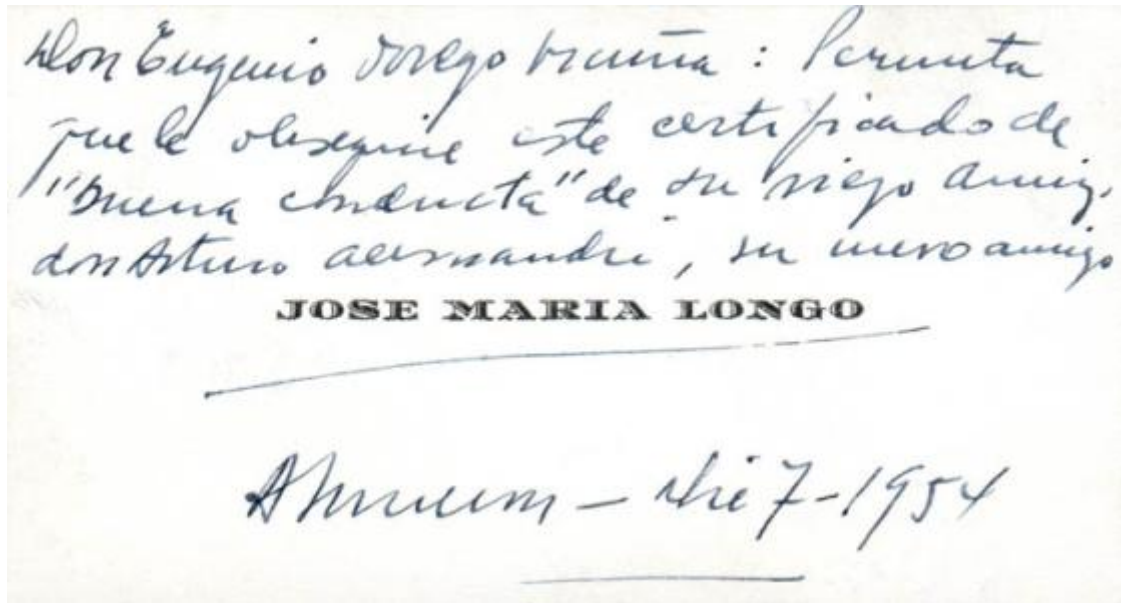 Don Eugenio Orrego Vicuña: Permita
que le obsequie este certificado de
"buena conducta" de su viejo amigo,
don Arturo Alessandri, su nuevo amigo
JOSE MARIA LONGO
Dic 7-1954